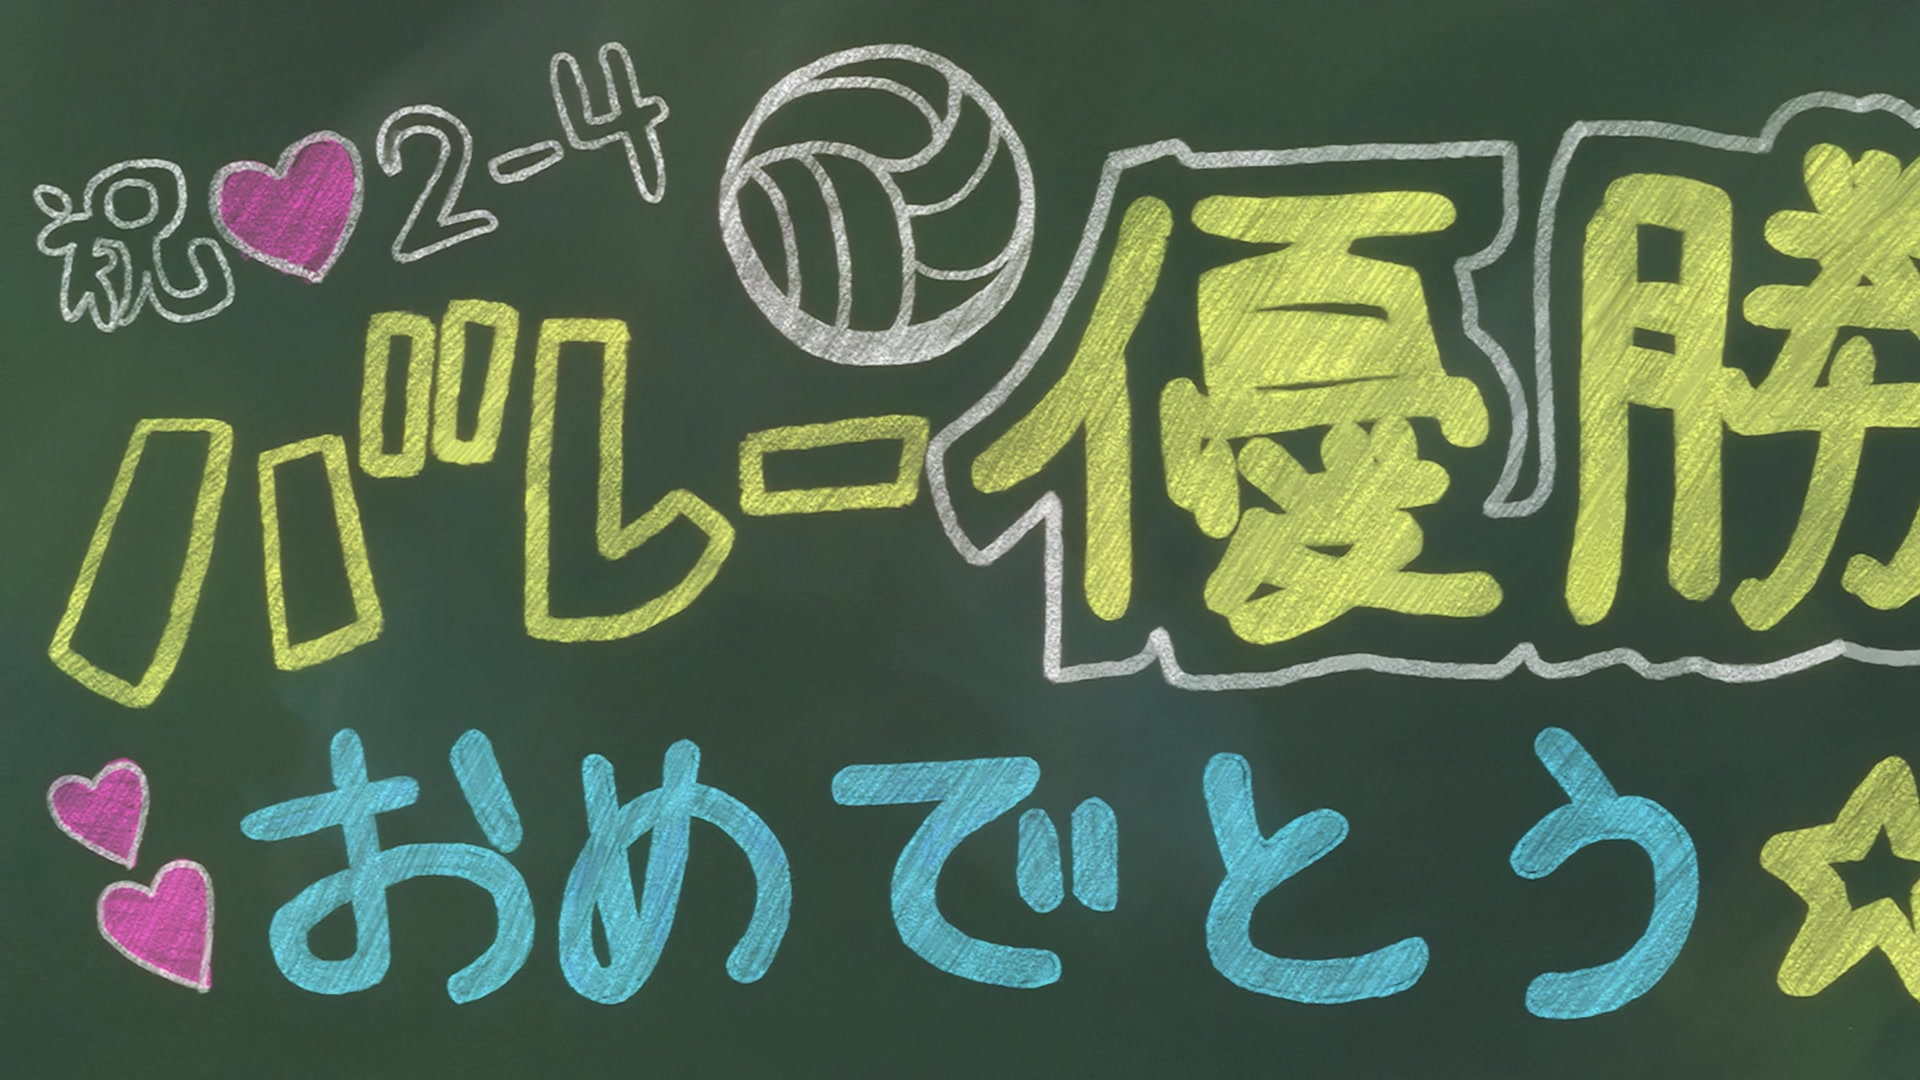 祝♥2-4
バレー優勝
おめでとう☆